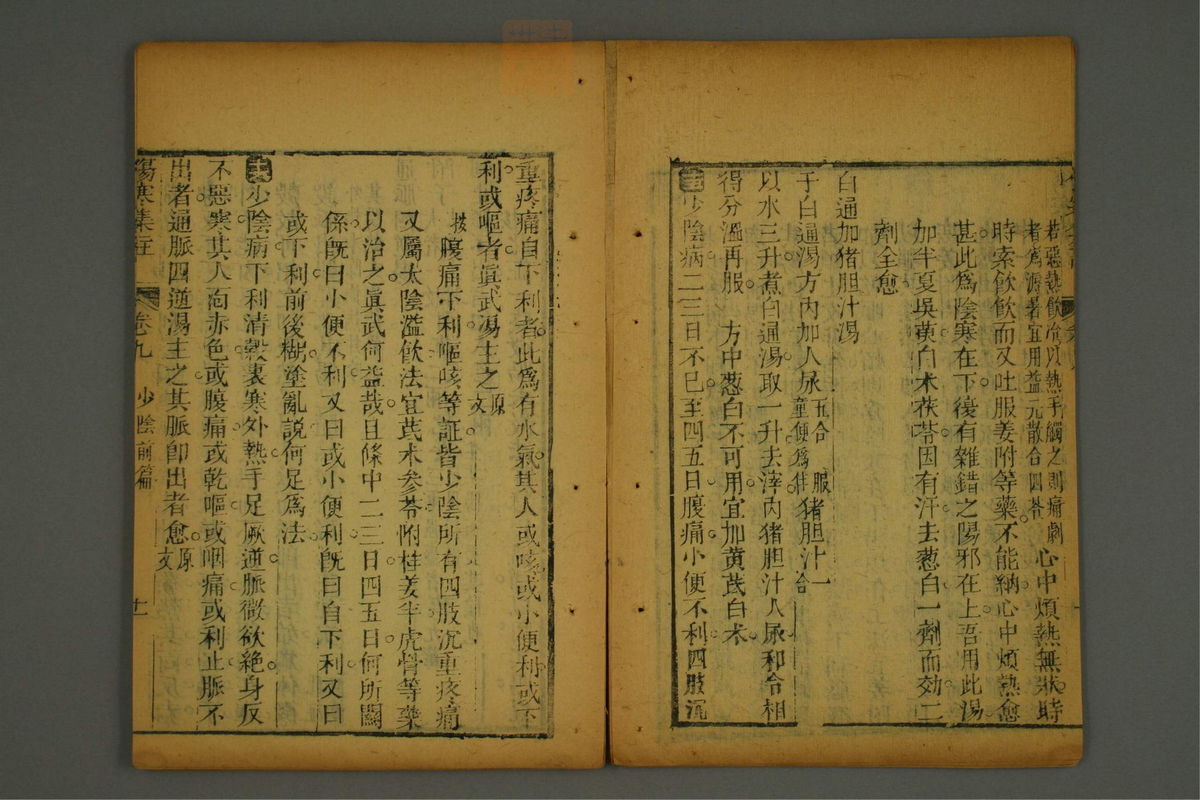 若惡熱飲冷以熱手觸之則痛劇
者為源著宜用益元散合四苓
心中煩熱無狀時
時索飲飲而又吐服姜附等藥不能納心中煩熱愈
甚此為陰寒在下復有雜錯之陽邪在上吾用此湯
加半夏吳萸白朮茯苓因有汗去葱白一劑而効二
劑全愈
白通加猪胆汁湯
于白通湯方內加人尿五合童便為佳猪胆汁一合
以水三升煮白通湯取一升去滓內猪胆汁人尿和合相
得分溫再服 方中葱白不可用宜加黄芪白朮
少陰病二三日不已至四五日腹痛小便不利四肢沉
重疼痛自下利者此為有水氣其人或咳或小便利或下
利或嘔者眞武湯主之原文
按腹痛下利嘔咳等証皆少陰所有四肢沉重疼痛
又屬太陰濫飲法宜芪朮参苓附桂姜半虎骨等藥
以治之眞武何益哉且條中二三日四五日何所關
係既曰小便不利又曰或小便利既曰自下利又曰
或下利前後糊塗亂說何足為法
少陰病下利清穀裏寒外熱手足厥逆脈微欲絶身反
不惡寒其人面赤色或腹痛或乾嘔或咽痛或利止脈不
出者通脈四逆湯主之其脈卽出者愈原文
傷寒集註 卷九 少陰前篇 十一